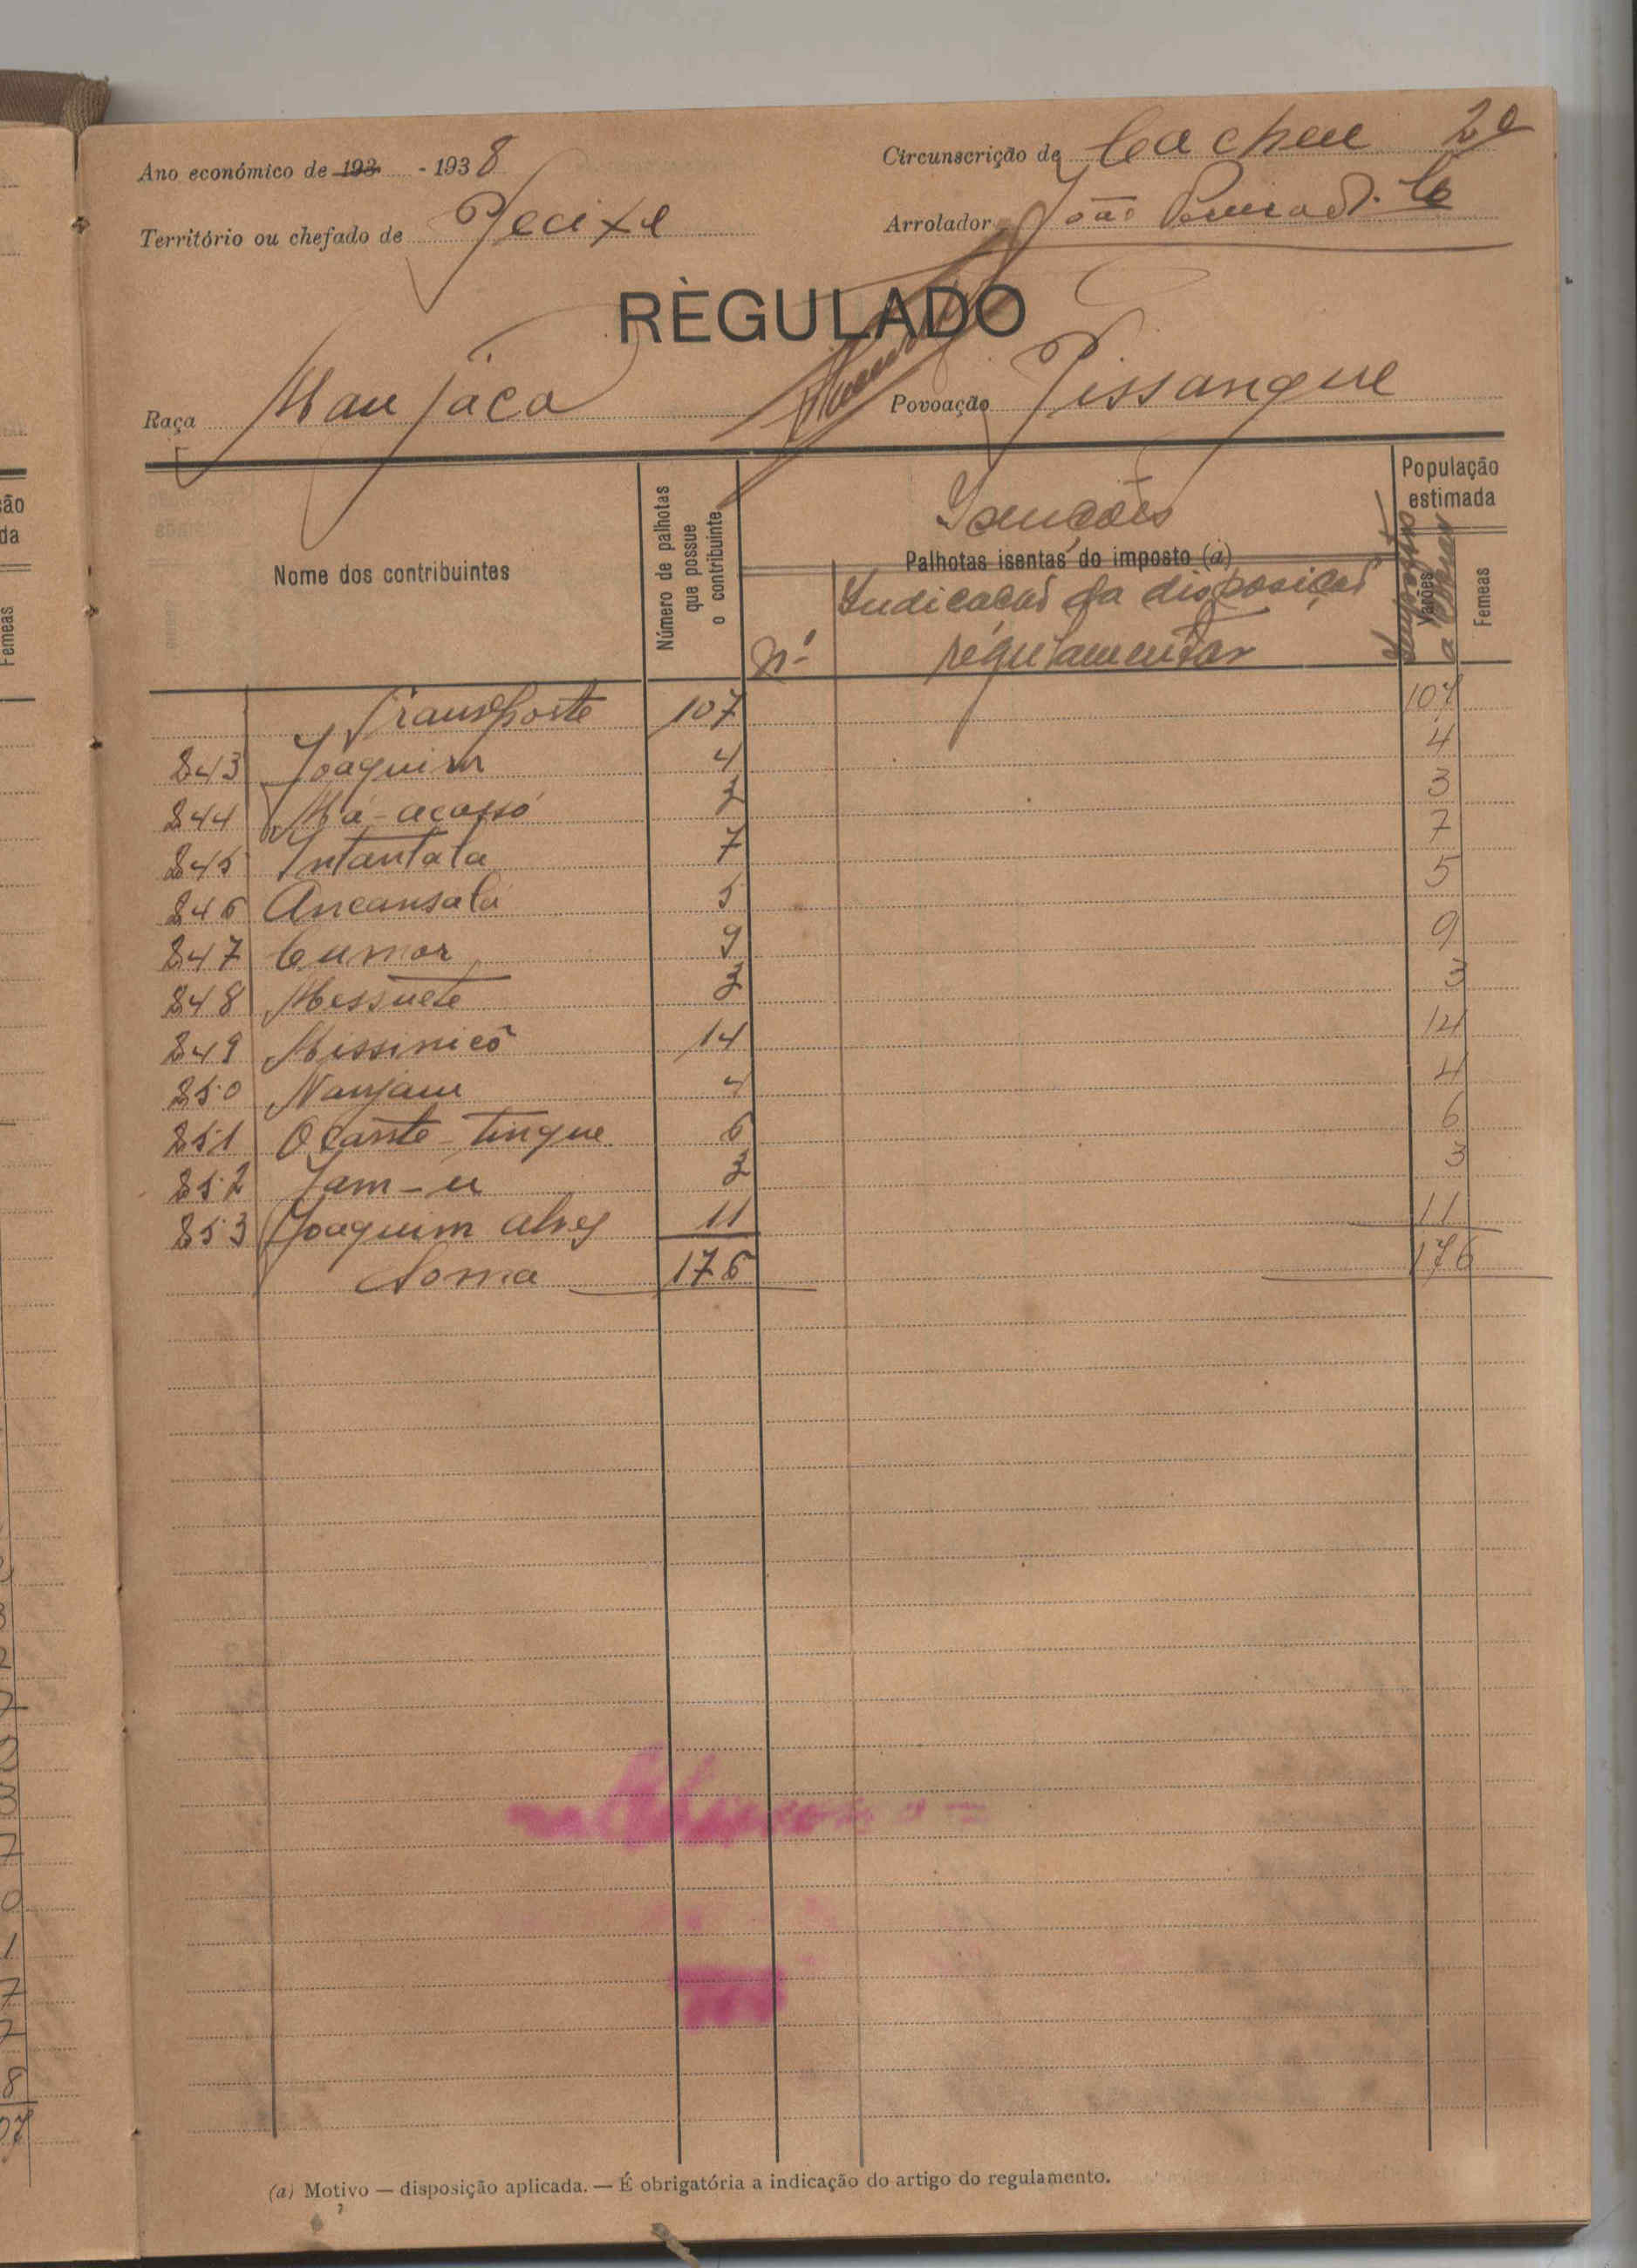 20
Ano económico de 193 - 1938 Circunscrição de Cacheu
Território ou chefado de Jecixe Arrolador João
RÈGULADO
Raça Manjaca Povoação Pissangue
Nome dos contribuintes
Número de palhotas que possue o contribuinte
Isenções
Palhotas isentas do imposto (a)
Nº Indicação da disposição
regulamentar
População
estimada
Imposto a
Varões
Femeas
Transporte 107 107
843 Joaquim 4 4
844 Má-acassó 3 3
845 Intantata 7 7
846 Ancansalá 5 5
847 Cumor 9 9
848 Messuete 3 3
849 Missinicô 14 14
850 Nanjam 4 4
851 Ocante-Tingue 6 6
852 Jam-u 3 3
853 Joaquim Alves 11 11
Soma 176 176
(a) Motivo — disposição aplicada. — É obrigatória a indicação do artigo do regulamento.
ão
da
Femeas